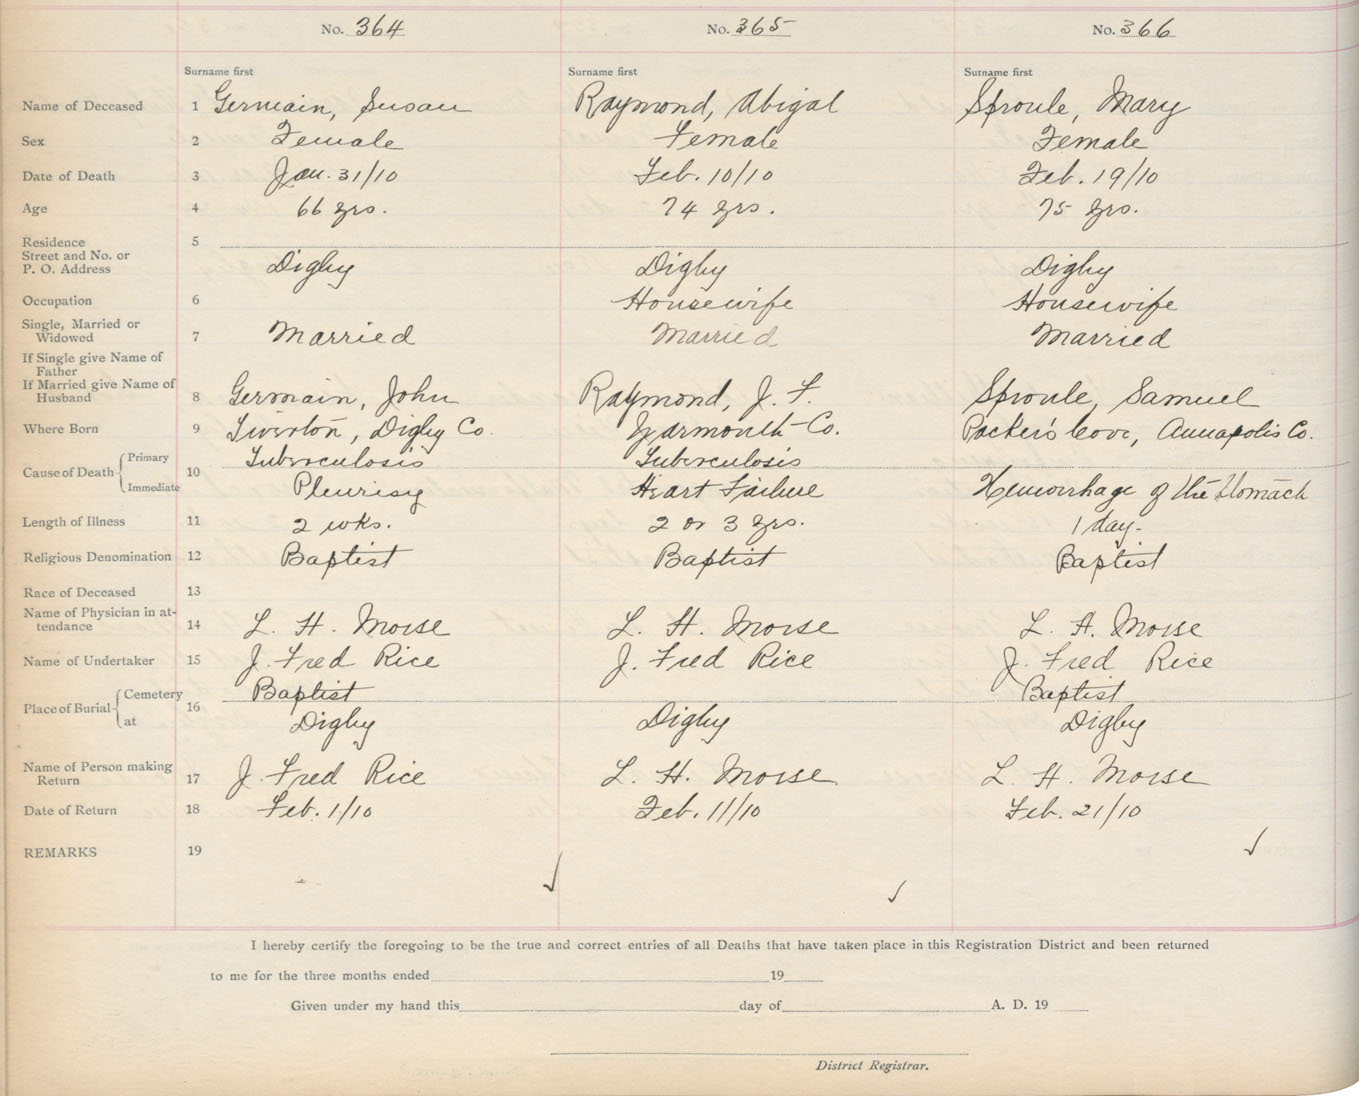 No. 364 No. 365 No. 366
Surname first Surname first Surname first
Name of Deceased 1 Germain, Susan Raymond, Abigal Sproule, Mary
Sex 2 Female Female Female
Date of Death 3 Jan. 31/10 Feb. 10/10 Feb. 19/10
Age 4 66 yrs. 74 yrs. 75 yrs.
Residence 5
Street and No. or
P. O. Address Digby Digby Digby
Occupation 6 Housewife Housewife
Single, Married or
Widowed 7 Married Married Married
If Single give Name of
Father
If Married give Name of
Husband 8 Germain, John Raymond, J. F. Sproule, Samuel
Where Born 9 Tiverton, Digby Co. Yarmouth Co. Parker's Cove, Annapolis Co.
Cause of Death Primary 10 Tuberculosis Tuberculosis
Immediate Pleurisy Heart Failure Hemorrhage of the Stomach
Length of Illness 11 2 wks. 2 or 3 yrs. 1 day.
Religious Denomination 12 Baptist Baptist Baptist
Race of Deceased 13
Name of Physician in at-
tendance 14 L. H. Morse L. H. Morse L. H. Morse
Name of Undertaker 15 J. Fred Rice J. Fred Rice J. Fred Rice
Place of Burial Cemetery 16 Baptist Baptist
at Digby Digby Digby
Name of Person making
Return 17 J. Fred Rice L. H. Morse L. H. Morse
Date of Return 18 Feb. 1/10 Feb. 11/10 Feb. 21/10
REMARKS 19
I hereby certify the foregoing to be the true and correct entries of all Deaths that have taken place in this Registration District and been returned
to me for the three months ended 19
Given under my hand this day of A. D. 19
District Registrar.